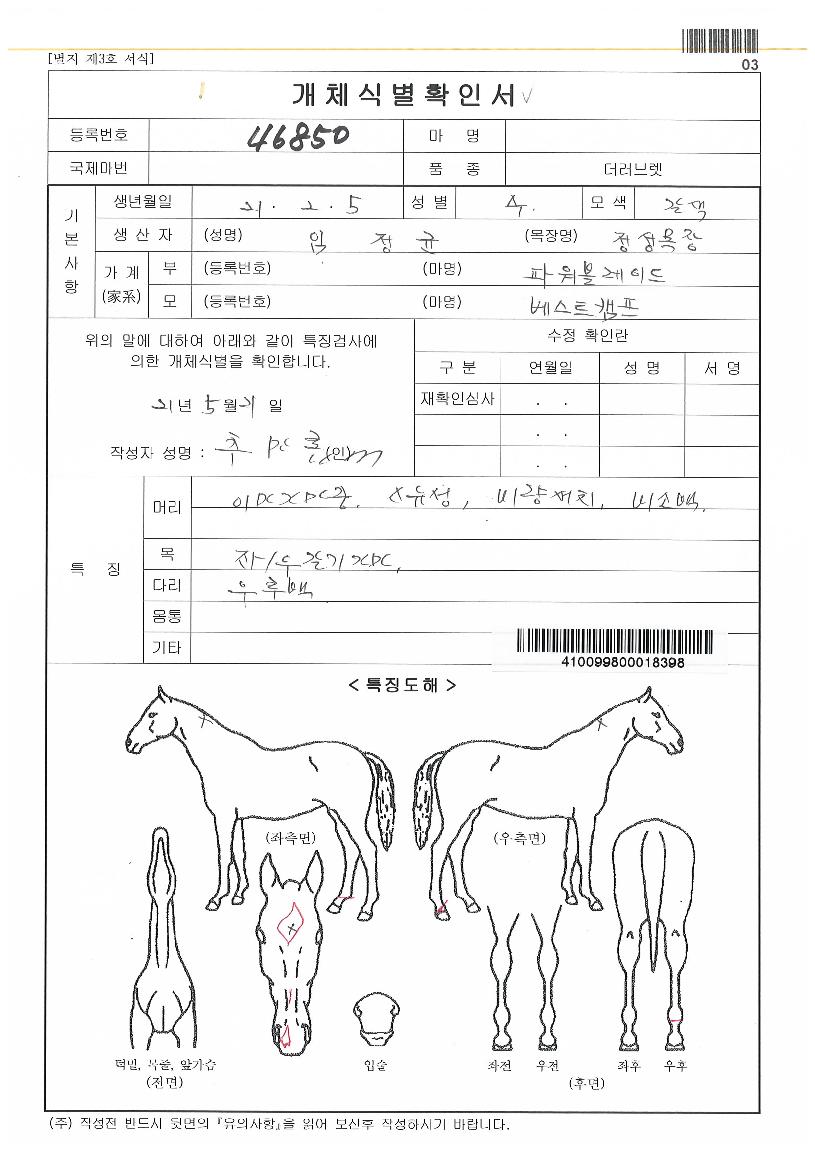 [별지 제3호 서식]
03
개체식별확인서
등록번호 46850 마 명
국제마번 품 종 더러브렛
기본사항
생년월일 21. 2. 5 성별 수. 모색 갈색
생산자 (성명) 임정균 (목장명) 정성목장
가계(家系) 부 (등록번호) (마명) 파워블레이드
모 (등록번호) (마명) 베스트캠프
위의 말에 대하여 아래와 같이 특징검사에
의한 개체식별을 확인합니다.
21년 5월 21일
작성자 성명 : (인)
수정 확인란
구 분 연월일 성 명 서 명
재확인심사 . .
. .
. .
특 징
머리
목
다리
몸통
기타
410099800018398
< 특징도해 >
(좌측면) (우측면)
턱밑, 목줄, 앞가슴
(전면)
입술
좌전 우전 좌후 우후
(후면)
(주) 작성전 반드시 뒷면의 『유의사항』을 읽어 보신후 작성하시기 바랍니다.